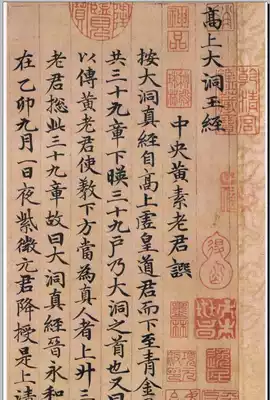 高上大洞玉經
中央黃素老君譔
按大洞真經自高上虛皇道君而下至青金
共三十九章下暎三十九戶乃大洞之首也又曰
以傳黃老君使教下方當為真人者上升三
老君㧾此三十九章故曰大洞真經晉永和
在乙卯九月一日夜紫微元君降授是上清
神品
乾清宮